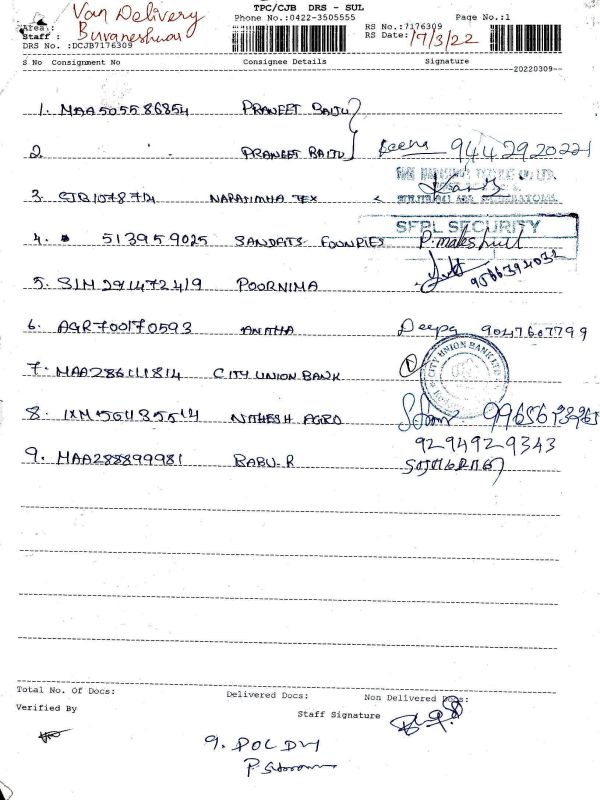 TPC/CJB DRS - SUL
Van Delivery
Phone No.:0422-3505555
Page No.:1
Area :
RS No.:7176309
Staff : Buvaneshwari
RS Date: 17/3/22
DRS No. :DCJB7176309
S No Consignment No Consignee Details Signature
20220309
1. MAA505586854 PRANEET BAIJU
2. PRANEET BAIJU 9442920221
3. NARASIMHA TEX
SFPL SECURITY
4. 513959025 SANDAITS FOUNRIES
9566394032
5. SIM291472419 POORNIMA
6. AGR700170593 ANITHA Deepa 9047607799
7. MAA286111814 CITY UNION BANK
CITY UNION BANK LTD
8. IXM561185514 NITHESH AGRO
9294929343
9. MAA288899981 BABU.R
Total No. Of Docs: Delivered Docs: Non Delivered Docs:
Verified By Staff Signature
9. POC DM